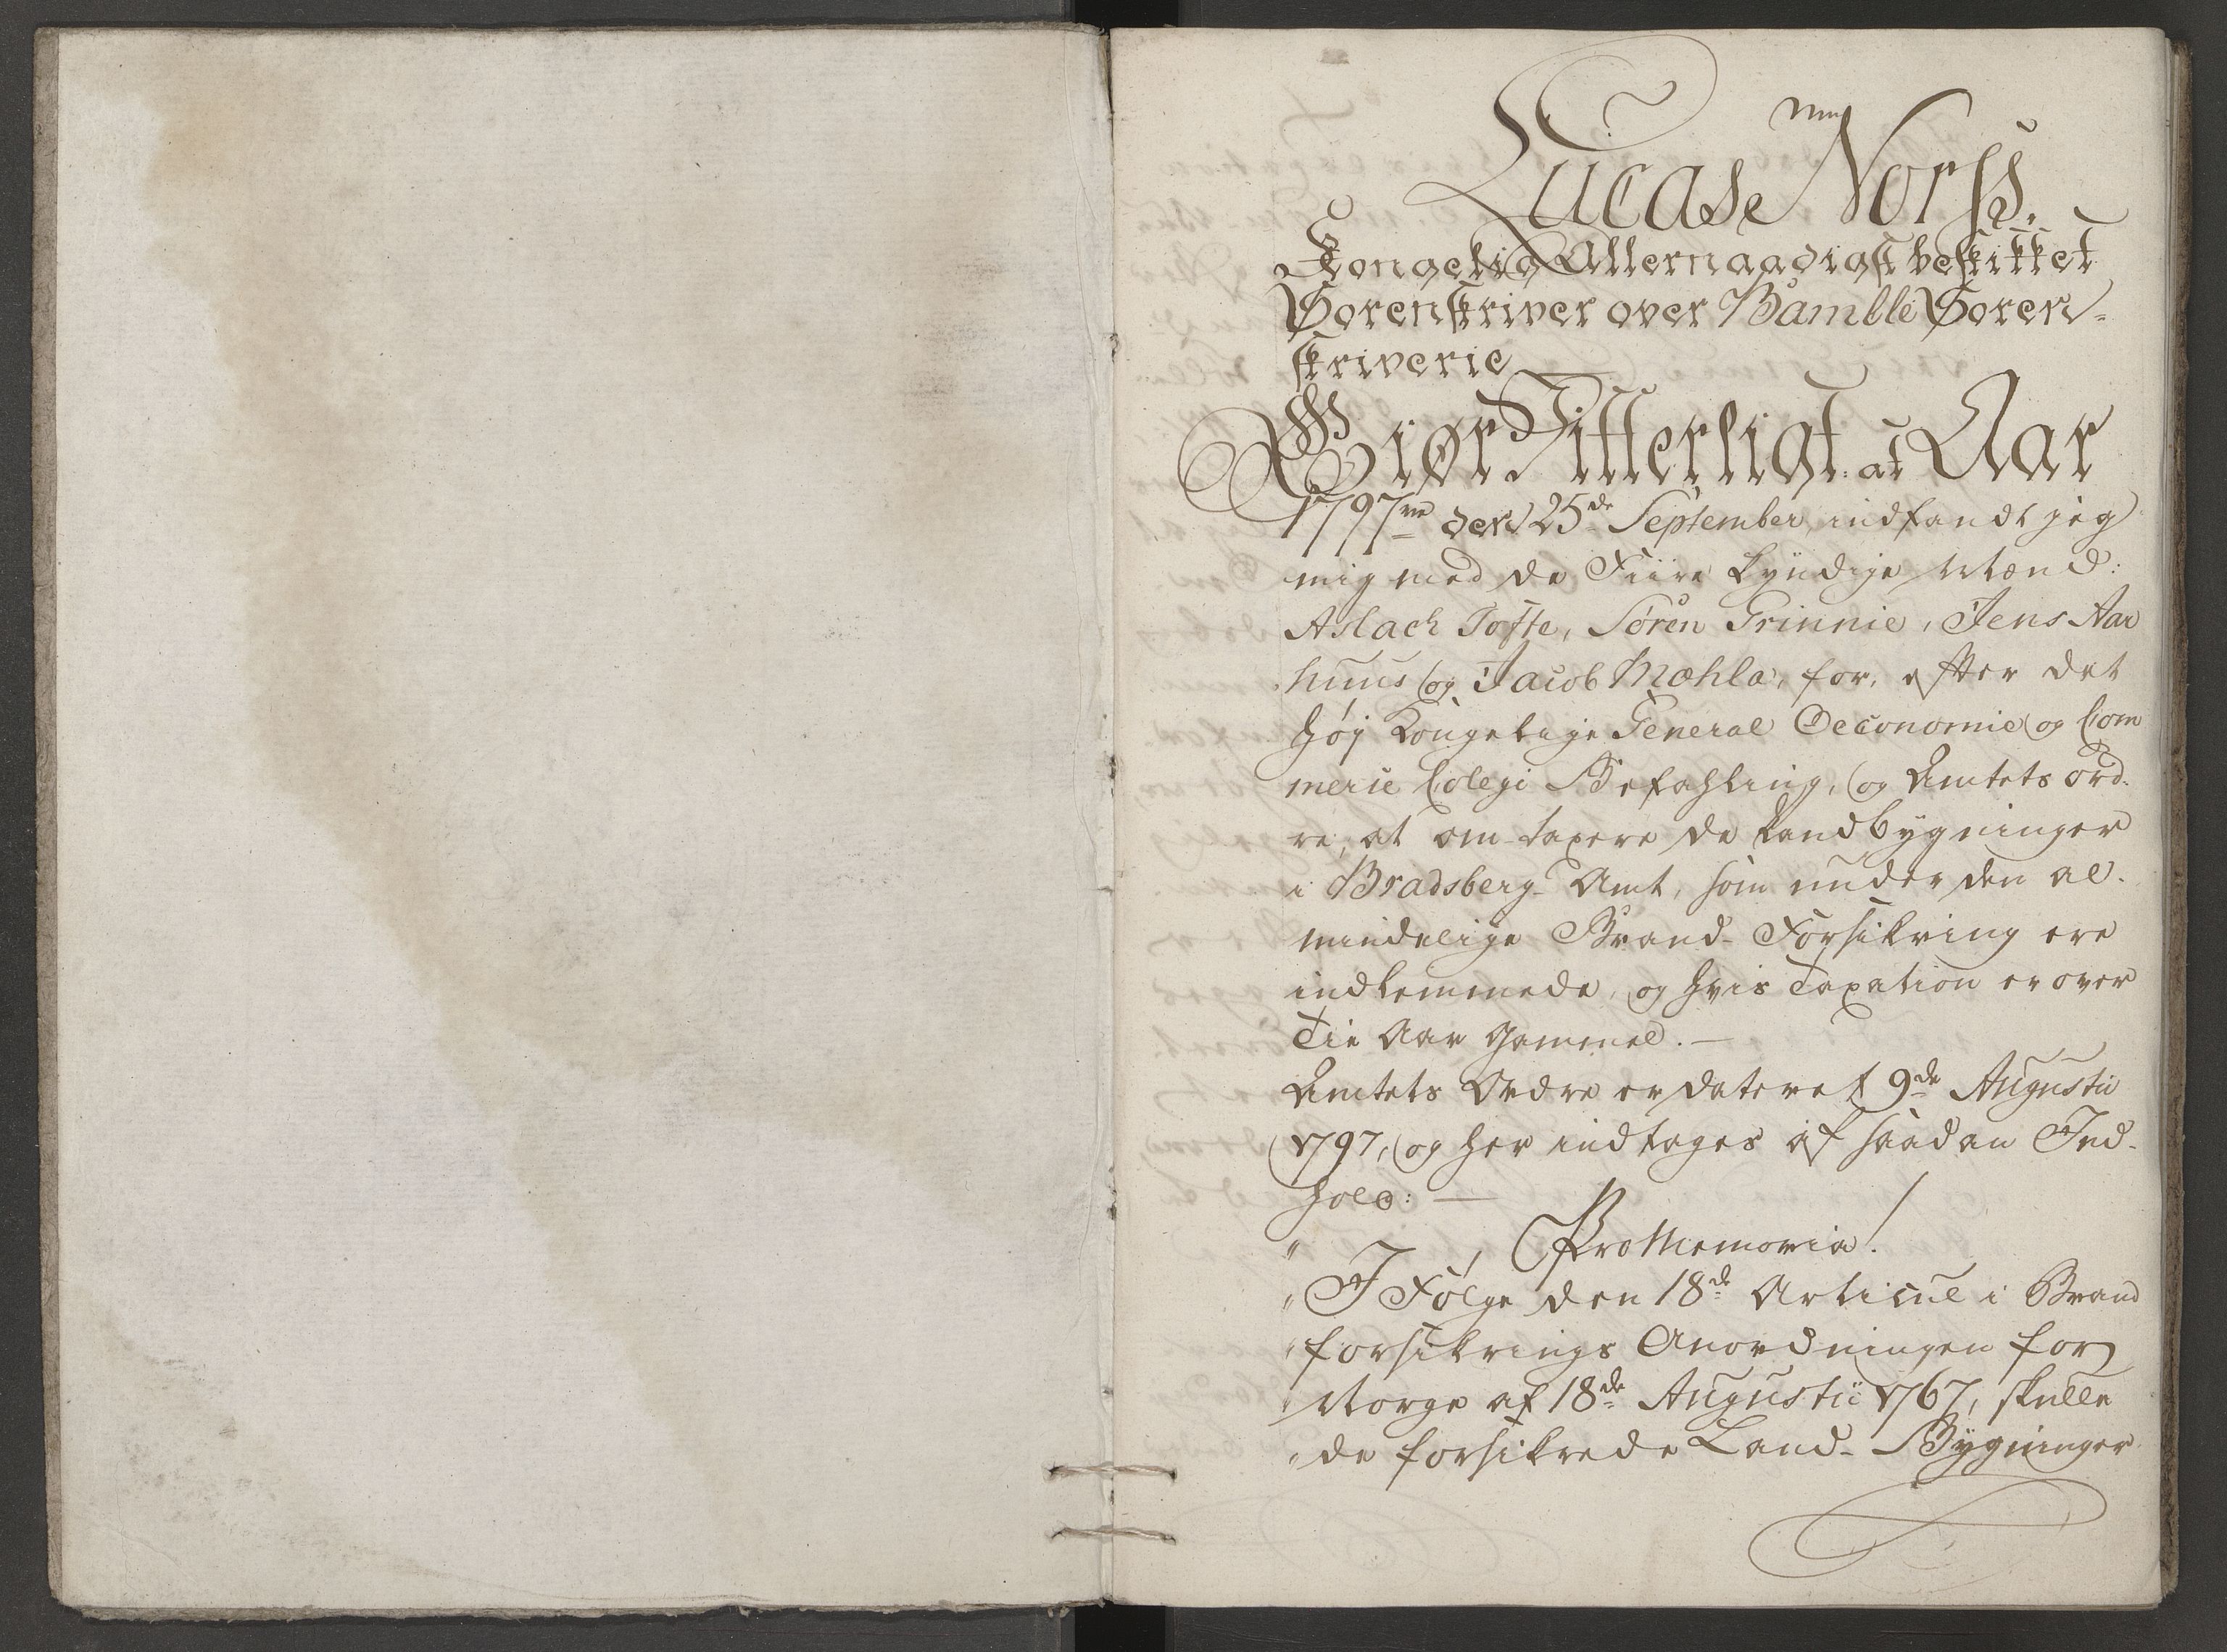 Lucase Norss.
Kongelig Allernaadigst beskikket
Sorenskriver over Bamble Soren-
skriverie
Giør Vitterligt: at Aar
1797 den 25de September, indfandt jeg
mig med de Fiire kyndige Mænd:
Aslach Tofte, Søren Grinnie, Jens Aar
huus og Jacob Mæhla, for, efter det
høj Kongelige General Oeconomie og Com
merse Colegi Befahling, og Amtets Ord-
re, at om-taxere de Landbygninger
i Bradsberg Amt, som under den al-
mindelige Brand-Forsikring ere
indlemmede, og hvis Taxation er over
Tie Aar gammel. —
Amtets Ordre er dateret 9de Augustii
1797, og her indtages af saadan Ind-
hold: —
" Pro Memoria!
" I Følge den 18de Articul i Brand
" forsikrings Anordningen for
" Norge af 18de Augustii 1767, skulle
" de forsikrede Land-Bygninger